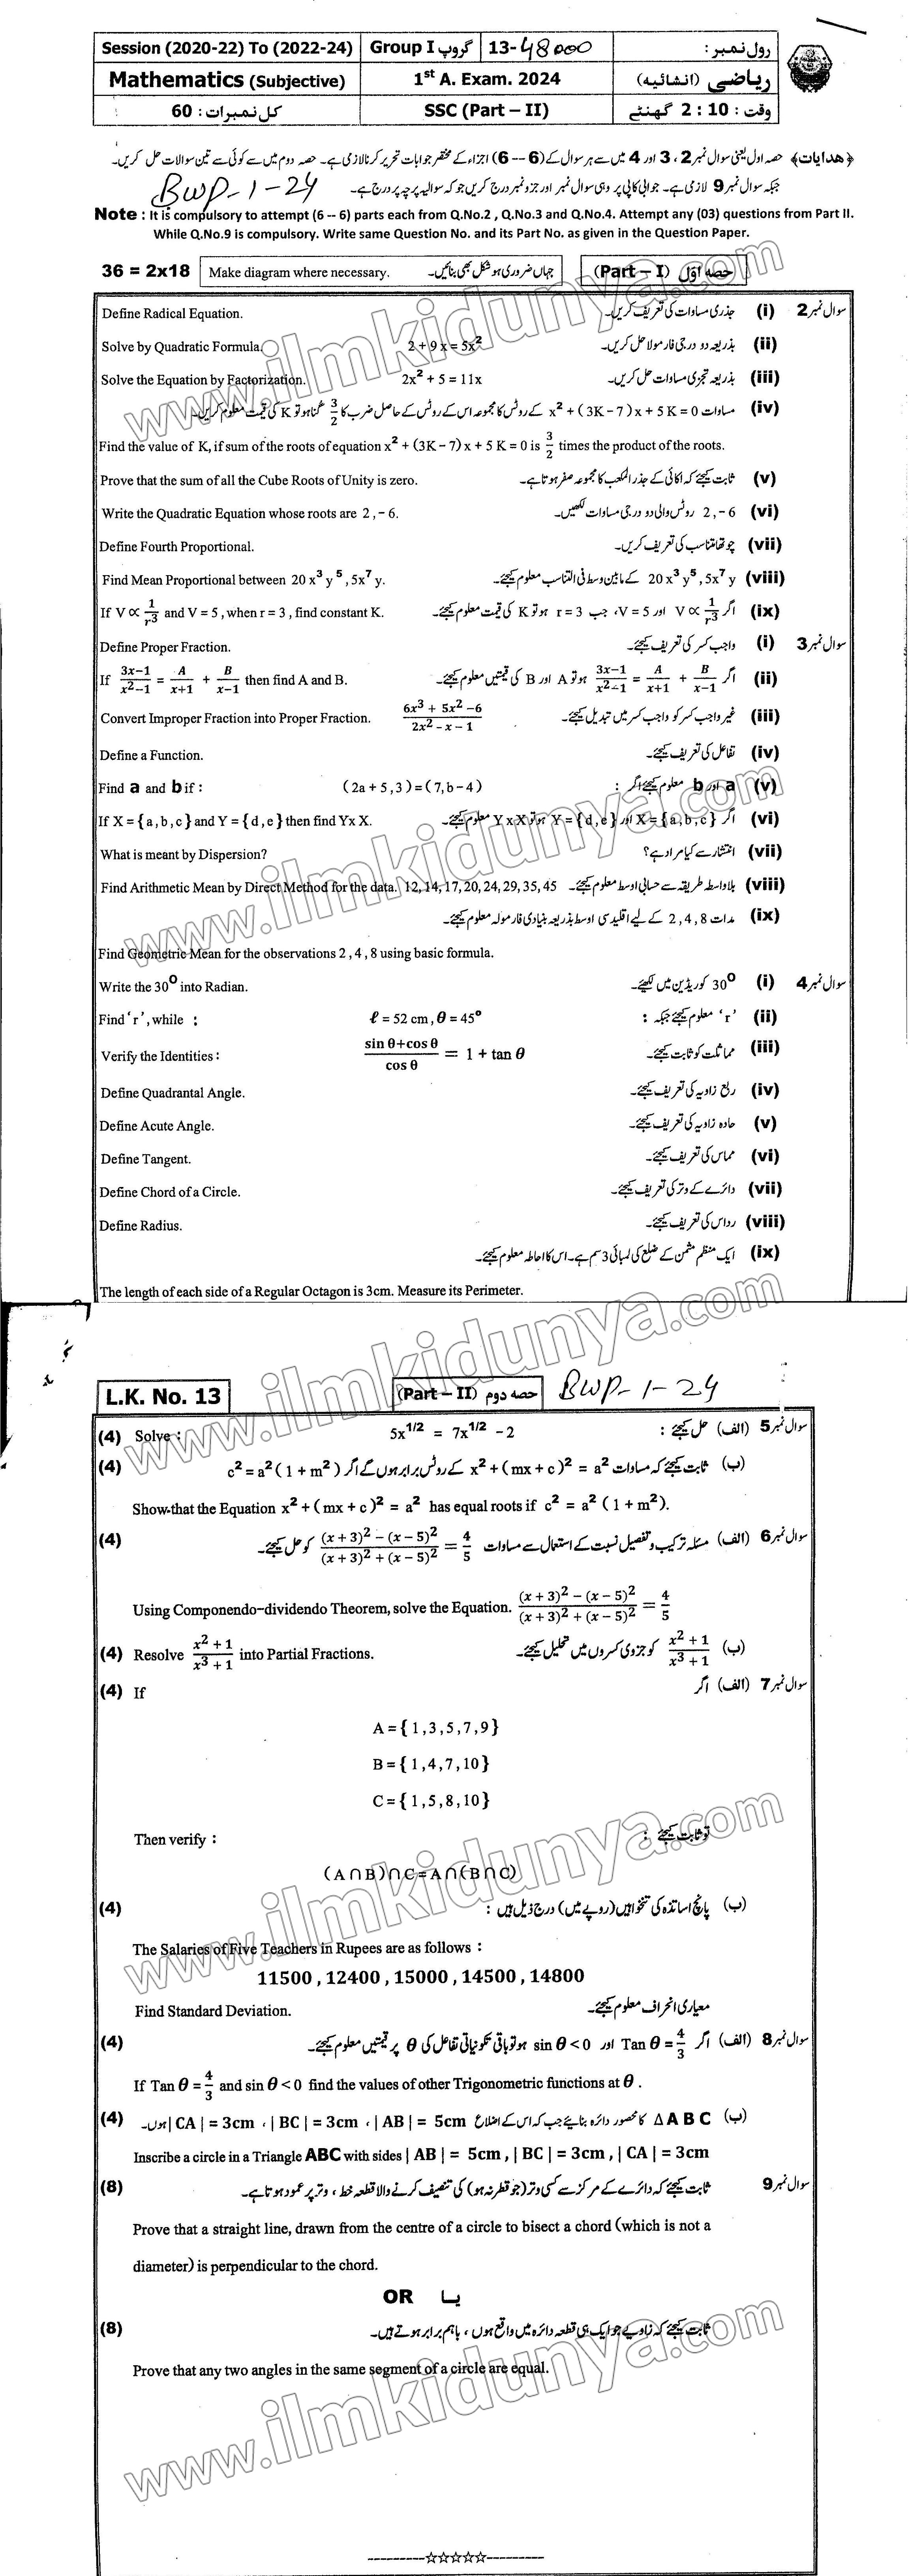 Session (2020-22) To (2022-24) Group I گروپ 13-48000 رول نمبر:
Mathematics (Subjective) 1st A. Exam. 2024 ریاضی (انشائیہ)
کل نمبرات: 60 SSC (Part – II) وقت: 2:10 گھنٹے
﴿ھدایات﴾ حصہ اول یعنی سوال نمبر 2، 3 اور 4 میں سے ہر سوال کے (6 -- 6) اجزاء کے مختصر جوابات تحریر کرنا لازمی ہے۔ حصہ دوم میں سے کوئی سے تین سوالات حل کریں۔
جبکہ سوال نمبر 9 لازمی ہے۔ جوابی کاپی پر وہی سوال نمبر اور جز و نمبر درج کریں جو کہ سوالیہ پرچہ پر درج ہے۔ BWP-1-24
Note : It is compulsory to attempt (6 -- 6) parts each from Q.No.2 , Q.No.3 and Q.No.4. Attempt any (03) questions from Part II.
While Q.No.9 is compulsory. Write same Question No. and its Part No. as given in the Question Paper.
36 = 2x18 Make diagram where necessary. جہاں ضروری ہو شکل بھی بنائیں۔ (Part – I) حصہ اوّل
Define Radical Equation. جذری مساوات کی تعریف کریں۔ (i) سوال نمبر 2
Solve by Quadratic Formula. 2 + 9 x = 5x² بذریعہ دو درجی فارمولا حل کریں۔ (ii)
Solve the Equation by Factorization. 2x² + 5 = 11x بذریعہ تجزی مساوات حل کریں۔ (iii)
مساوات x² + ( 3K – 7 ) x + 5 K = 0 کے روٹس کا مجموعہ اس کے روٹس کے حاصل ضرب کا 3/2 گنا ہو تو K کی قیمت معلوم کریں۔ (iv)
Find the value of K, if sum of the roots of equation x² + (3K – 7) x + 5 K = 0 is 3/2 times the product of the roots.
Prove that the sum of all the Cube Roots of Unity is zero. ثابت کیجئے کہ اکائی کے جذر المکعب کا مجموعہ صفر ہوتا ہے۔ (v)
Write the Quadratic Equation whose roots are 2 , – 6. 2 , – 6 روٹس والی دو درجی مساوات لکھیں۔ (vi)
Define Fourth Proportional. چوتھا متناسب کی تعریف کریں۔ (vii)
Find Mean Proportional between 20 x³ y⁵ , 5x⁷ y. 20 x³ y⁵ , 5x⁷ y کے مابین وسط فی التناسب معلوم کیجئے۔ (viii)
If V ∝ 1/r³ and V = 5 , when r = 3 , find constant K. اگر V ∝ 1/r³ اور V = 5، جب r = 3 ہو تو K کی قیمت معلوم کیجئے۔ (ix)
Define Proper Fraction. واجب کسر کی تعریف کیجئے۔ (i) سوال نمبر 3
If (3x−1)/(x²−1) = A/(x+1) + B/(x−1) then find A and B. اگر (3x−1)/(x²−1) = A/(x+1) + B/(x−1) ہو تو A اور B کی قیمتیں معلوم کیجئے۔ (ii)
Convert Improper Fraction into Proper Fraction. (6x³ + 5x² −6)/(2x² − x − 1) غیر واجب کسر کو واجب کسر میں تبدیل کیجئے۔ (iii)
Define a Function. تفاعل کی تعریف کیجئے۔ (iv)
Find a and b if : ( 2a + 5 , 3 ) = ( 7 , b – 4 ) a اور b معلوم کیجئے اگر : (v)
If X = { a , b , c } and Y = { d , e } then find Y x X. اگر X = { a , b , c } اور Y = { d , e } ہو تو Y x X معلوم کیجئے۔ (vi)
What is meant by Dispersion? انتشار سے کیا مراد ہے؟ (vii)
Find Arithmetic Mean by Direct Method for the data. 12, 14, 17, 20, 24, 29, 35, 45 بلا واسطہ طریقہ سے حسابی اوسط معلوم کیجئے۔ (viii)
مدات 2 , 4 , 8 کے لیے اقلیدسی اوسط بذریعہ بنیادی فارمولہ معلوم کیجئے۔ (ix)
Find Geometric Mean for the observations 2 , 4 , 8 using basic formula.
Write the 30⁰ into Radian. 30⁰ کو ریڈین میں لکھئے۔ (i) سوال نمبر 4
Find ‘r’ , while : ℓ = 52 cm , θ = 45° ‘r’ معلوم کیجئے جبکہ : (ii)
Verify the Identities : (sin θ+cos θ)/cos θ = 1 + tan θ مماثلت کو ثابت کیجئے۔ (iii)
Define Quadrantal Angle. ربع زاویہ کی تعریف کیجئے۔ (iv)
Define Acute Angle. حادہ زاویہ کی تعریف کیجئے۔ (v)
Define Tangent. مماس کی تعریف کیجئے۔ (vi)
Define Chord of a Circle. دائرے کے وتر کی تعریف کیجئے۔ (vii)
Define Radius. رداس کی تعریف کیجئے۔ (viii)
ایک منظم مثمن کے ضلع کی لمبائی 3 سم ہے۔ اس کا احاطہ معلوم کیجئے۔ (ix)
The length of each side of a Regular Octagon is 3cm. Measure its Perimeter.
L.K. No. 13 (Part – II) حصہ دوم BWP-1-24
(4) Solve : 5x^1/2 = 7x^1/2 - 2 حل کیجئے : (الف) سوال نمبر 5
(4) ثابت کیجئے کہ مساوات x² + ( mx + c )² = a² کے روٹس برابر ہوں گے اگر c² = a² ( 1 + m² ) (ب)
Show that the Equation x² + ( mx + c )² = a² has equal roots if c² = a² ( 1 + m² ).
(4) مسئلہ ترکیب و تفصیل نسبت کے استعمال سے مساوات ((x + 3)² − (x − 5)²)/((x + 3)² + (x − 5)²) = 4/5 کو حل کیجئے۔ (الف) سوال نمبر 6
Using Componendo-dividendo Theorem, solve the Equation. ((x + 3)² − (x − 5)²)/((x + 3)² + (x − 5)²) = 4/5
(4) Resolve (x² + 1)/(x³ + 1) into Partial Fractions. (x² + 1)/(x³ + 1) کو جزوی کسروں میں تحلیل کیجئے۔ (ب)
(4) If اگر (الف) سوال نمبر 7
A = { 1 , 3 , 5 , 7 , 9 }
B = { 1 , 4 , 7 , 10 }
C = { 1 , 5 , 8 , 10 }
Then verify : تو ثابت کیجئے :
(A ∩ B) ∩ C = A ∩ (B ∩ C)
(4) پانچ اساتذہ کی تنخواہیں (روپے میں) درج ذیل ہیں : (ب)
The Salaries of Five Teachers in Rupees are as follows :
11500 , 12400 , 15000 , 14500 , 14800
Find Standard Deviation. معیاری انحراف معلوم کیجئے۔
(4) اگر Tan θ = 4/3 اور sin θ < 0 ہو تو باقی تکونیاتی تفاعل کی θ پر قیمتیں معلوم کیجئے۔ (الف) سوال نمبر 8
If Tan θ = 4/3 and sin θ < 0 find the values of other Trigonometric functions at θ .
(4) Δ A B C کا محصور دائرہ بنائیے جب کہ اس کے اضلاع | AB | = 5cm ، | BC | = 3cm ، | CA | = 3cm ہوں۔ (ب)
Inscribe a circle in a Triangle ABC with sides | AB | = 5cm , | BC | = 3cm , | CA | = 3cm
(8) ثابت کیجئے کہ دائرے کے مرکز سے کسی وتر (جو قطر نہ ہو) کی تنصیف کرنے والا قطعہ خط ، وتر پر عمود ہوتا ہے۔ سوال نمبر 9
Prove that a straight line, drawn from the centre of a circle to bisect a chord (which is not a
diameter) is perpendicular to the chord.
OR یا
(8) ثابت کیجئے کہ زاویے جو ایک ہی قطعہ دائرہ میں واقع ہوں ، باہم برابر ہوتے ہیں۔
Prove that any two angles in the same segment of a circle are equal.
www.ilmkidunya.com
www.ilmkidunya.com
www.ilmkidunya.com
www.ilmkidunya.com
www.ilmkidunya.com
---------☆☆☆☆☆---------